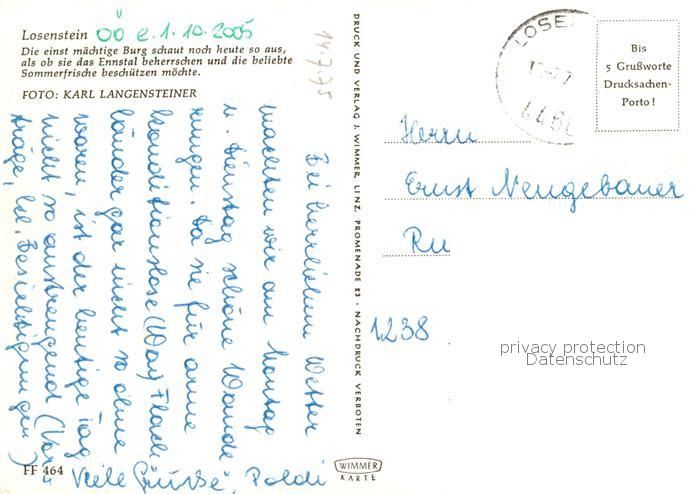 Losenstein OÖ e. 1.10.2005
Die einst mächtige Burg schaut noch heute so aus,
als ob sie das Ennstal beherrschen und die beliebte
Sommerfrische beschützen möchte.
FOTO: KARL LANGENSTEINER
14.7.75
Bei herrlichem Wetter
machten wir am Montag
u. Dienstag schöne Wande
rungen. Da sie für arme
konditionslose (Wav) Flach
länder gar nicht so ohne
waren, ist der heutige Tag
nicht so anstrengend (Vor
träge, bzl. Besichtigungen)
Viele Grüsse, Poldi
FF 464
DRUCK UND VERLAG J. WIMMER, LINZ, PROMENADE 23 · NACHDRUCK VERBOTEN
WIMMER
KARTE
LOSE
446
Bis
5 Grußworte
Drucksachen-
Porto!
Herrn
Ernst Neugebauer
1238
privacy protection
Datenschutz